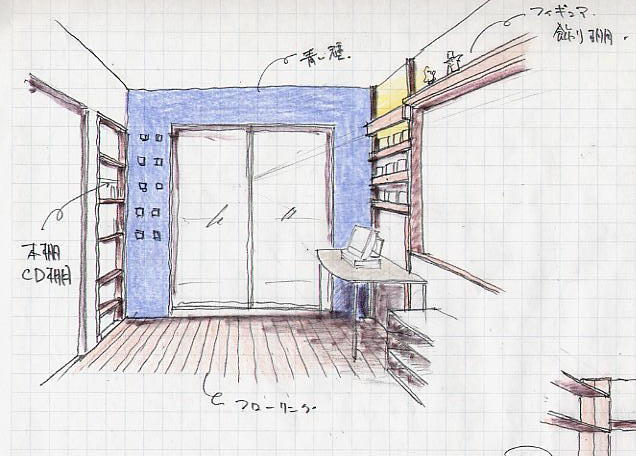 フィギュア.
飾り棚.
青い壁.
本棚
CD棚
フローリング